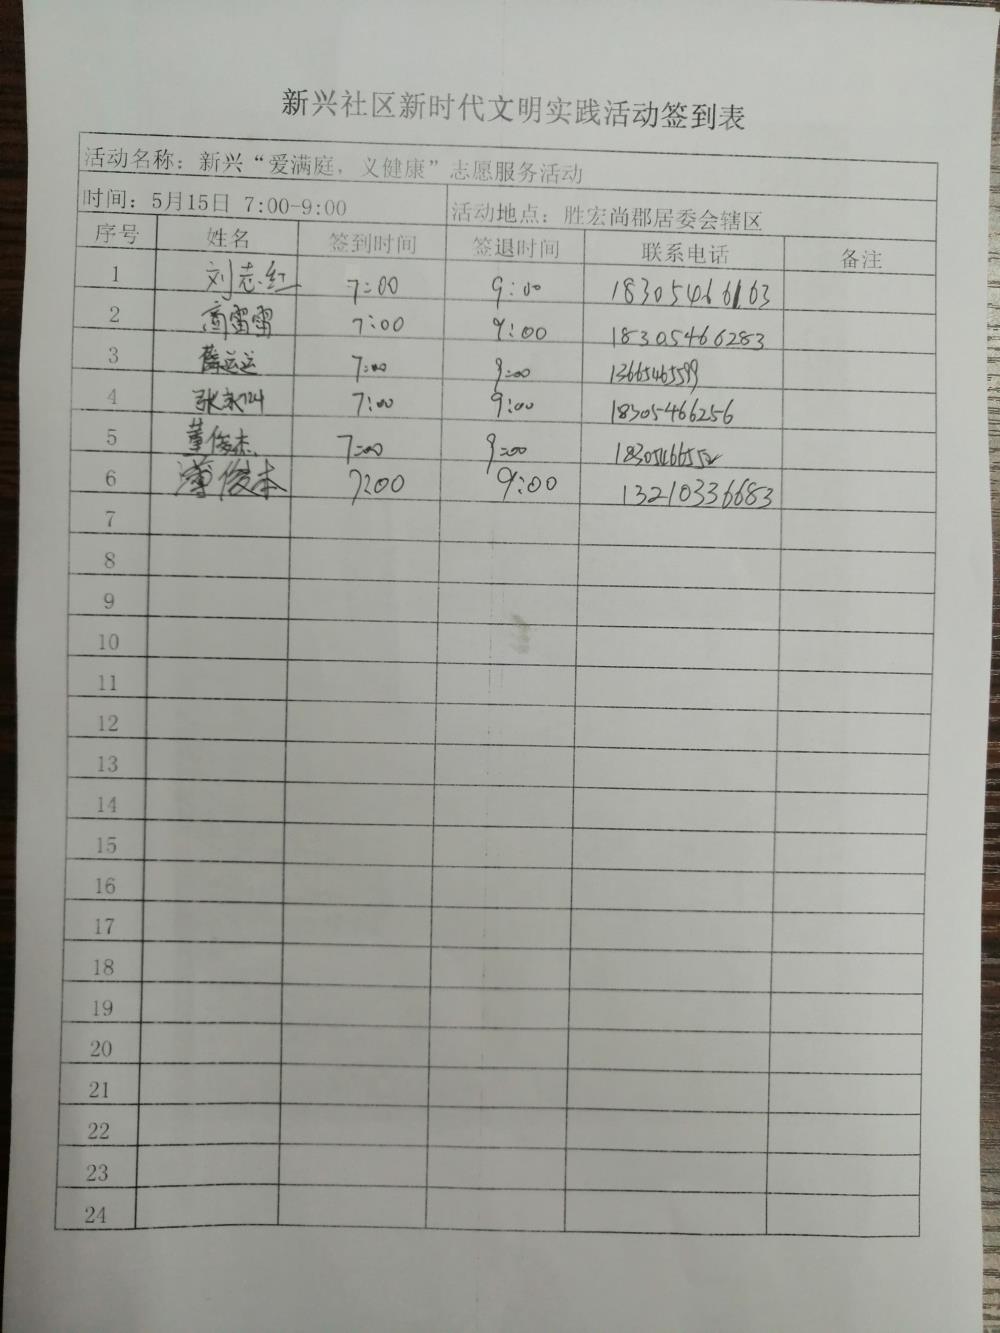 新兴社区新时代文明实践活动签到表
活动名称：新兴“爱满庭，义健康”志愿服务活动
时间：5月15日 7:00-9:00 活动地点：胜宏尚郡居委会辖区
序号 姓名 签到时间 签退时间 联系电话 备注
1 刘志红 7:00 9:00 18305466163
2 高雷雷 7:00 9:00 18305466283
3 薛运运 7:00 9:00 13665465599
4 7:00 9:00 18305466256
5 董俊杰 7:00 9:00
6 薄俊本 7:00 9:00 13210336683
7
8
9
10
11
12
13
14
15
16
17
18
19
20
21
22
23
24